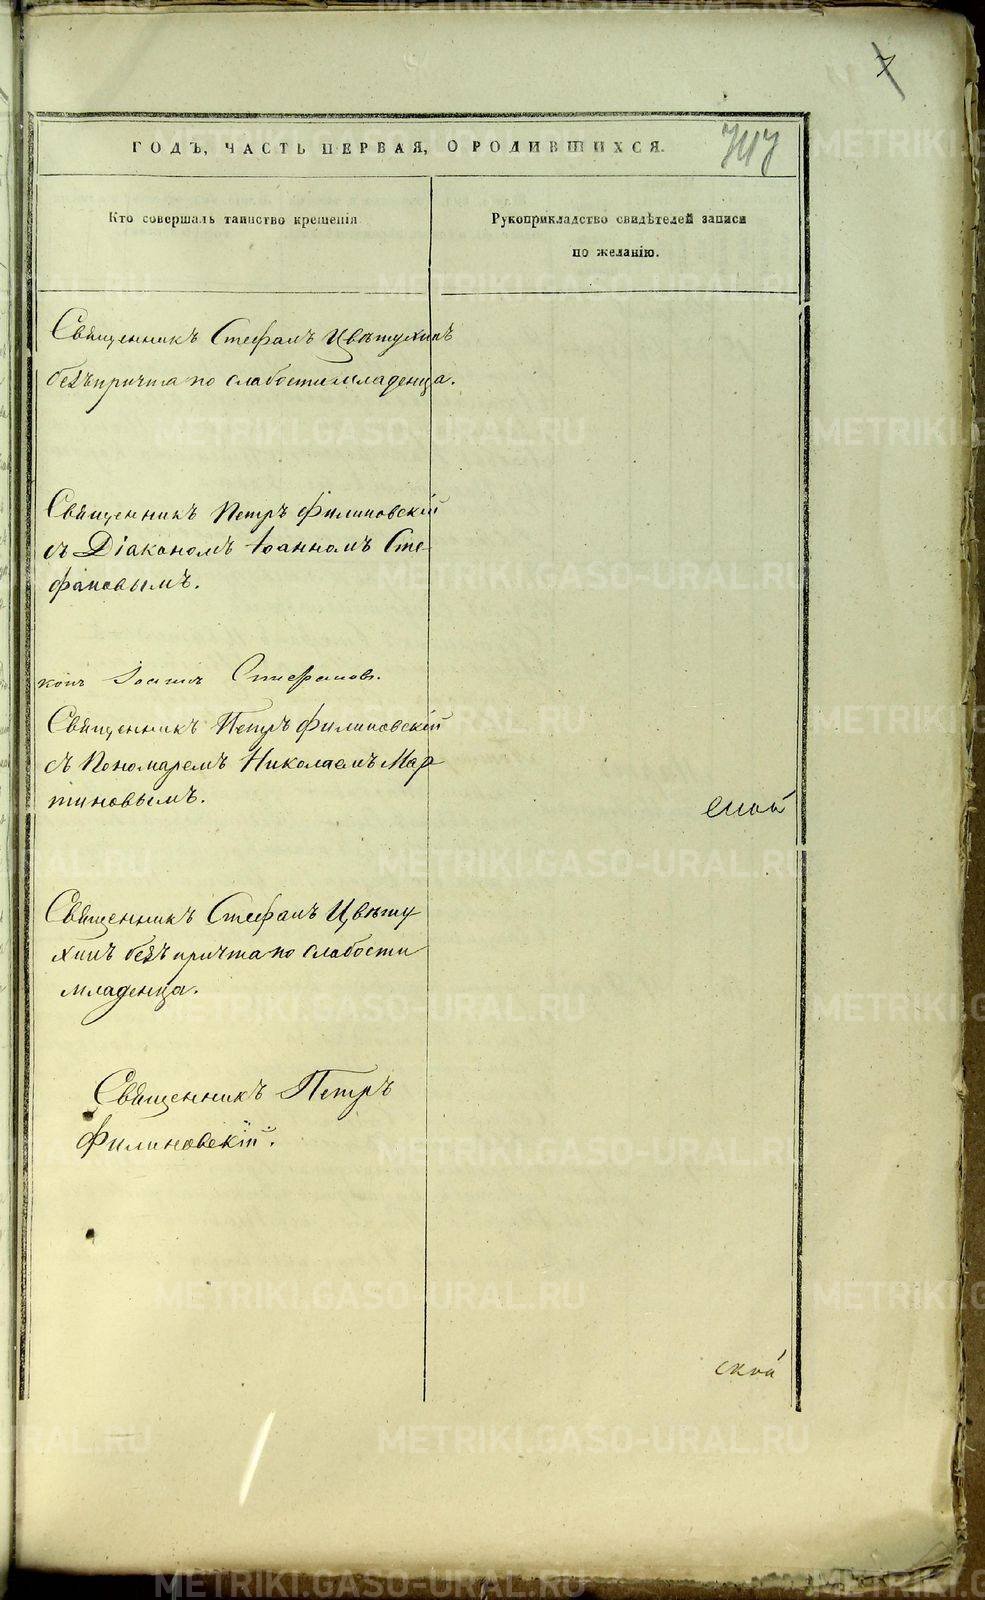 7
ГОДЪ, ЧАСТЬ ПЕРВАЯ, О РОДИВШИХСЯ.
Кто совершалъ таинство крещенія
Рукоприкладство свидѣтелей записи
по желанію.
Священникъ Стефанъ Цвѣтухинъ
безъ причта по слабости младенца.
Священникъ Петръ Филиновскій
съ Діакономъ Іоанномъ Сте-
фановымъ.
конъ Іоаннъ Стефановъ.
Священникъ Петръ Филиновскій
съ Пономаремъ Николаемъ Мар
тиновымъ.
ской
Священникъ Стефанъ Цвѣту
хинъ безъ причта по слабости
младенца.
Священникъ Петръ
Филиновскій.
ской
METRIKI.GASO-URAL.RU